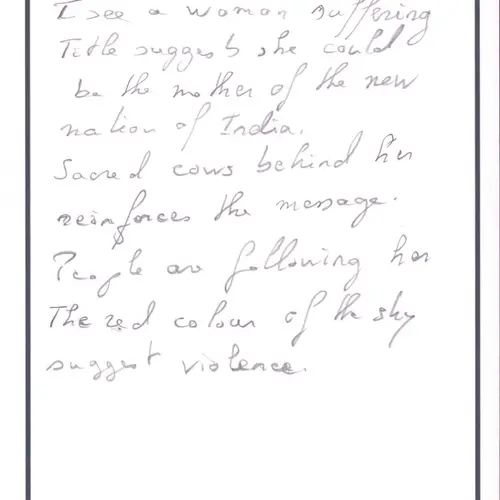 I see a woman suffering
Title suggests she could
be the mother of the new
nation of India.
Sacred cows behind her
reinforces the message.
People are following her
The red colour of the sky
suggest violence.